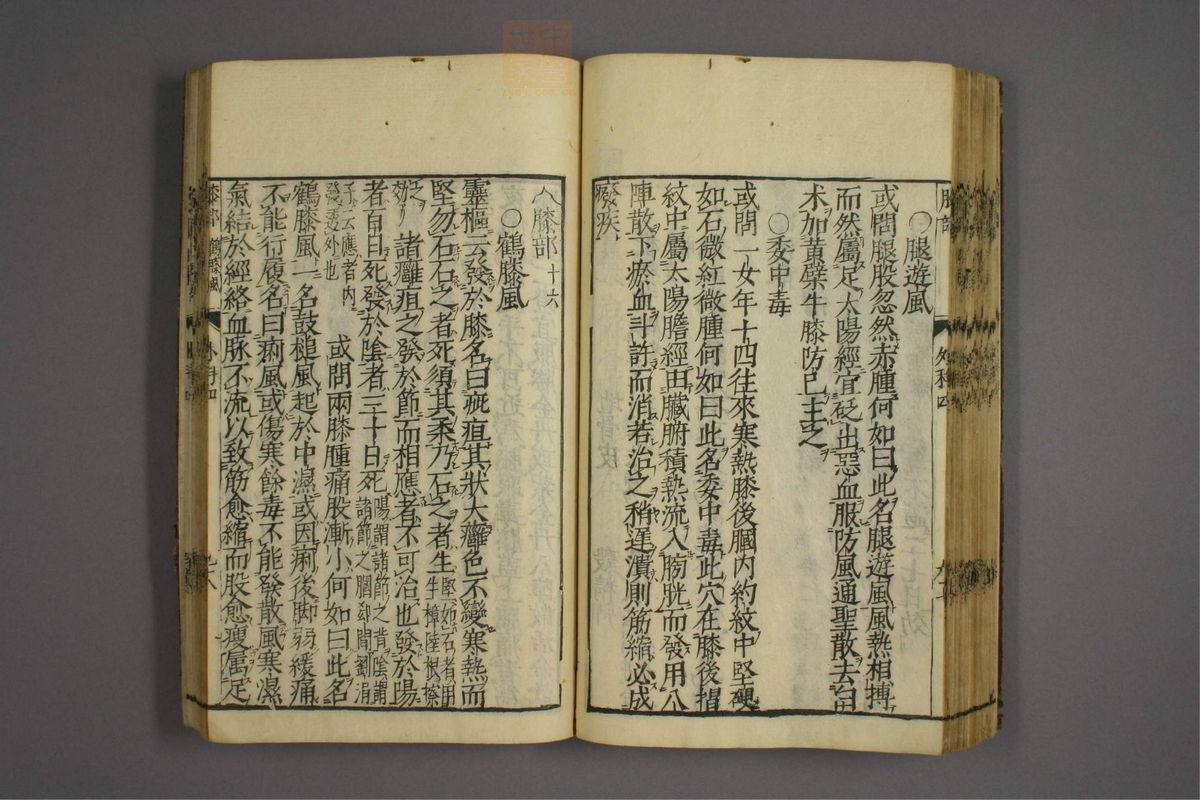 ○腿遊風
或問腿股忽然赤腫何如曰此名腿遊風風熱相搏
而然屬足太陽經宜砭出惡血服防風通聖散去白
术加黃蘗牛膝防己主之
○委中毒
或問一女年十四往來寒熱膝後膕內約紋中堅硬
如石微紅微腫何如曰此名委中毒此穴在膝後摺
紋中屬太陽膽經由臟腑積熱流入膀胱而發用八
陣散下瘀血斗許而消若治之稍遲潰則筋縮必成
癈疾
膝部十六
○鶴膝風
靈樞云發於膝名曰疵疽其狀大癰色不變寒熱而
堅勿石石之者死須其柔乃石之者生堅如石者用
牛樟陸根搽
之效諸癰疽之發於節而相應者不可治也發於陽
者百日死發於陰者三十日死陽謂諸節之背陰謂
諸節之膕郄間劉涓
子云應者內
發透外也或問兩膝腫痛股漸小何如曰此名
鶴膝風一名鼓槌風起於中濕或因痢後脚弱緩痛
不能行履名曰痢風或傷寒餘毒不能發散風寒濕
氣結於經絡血脉不流以致筋愈縮而股愈瘦屬足
膝部 鶴膝風
外科四